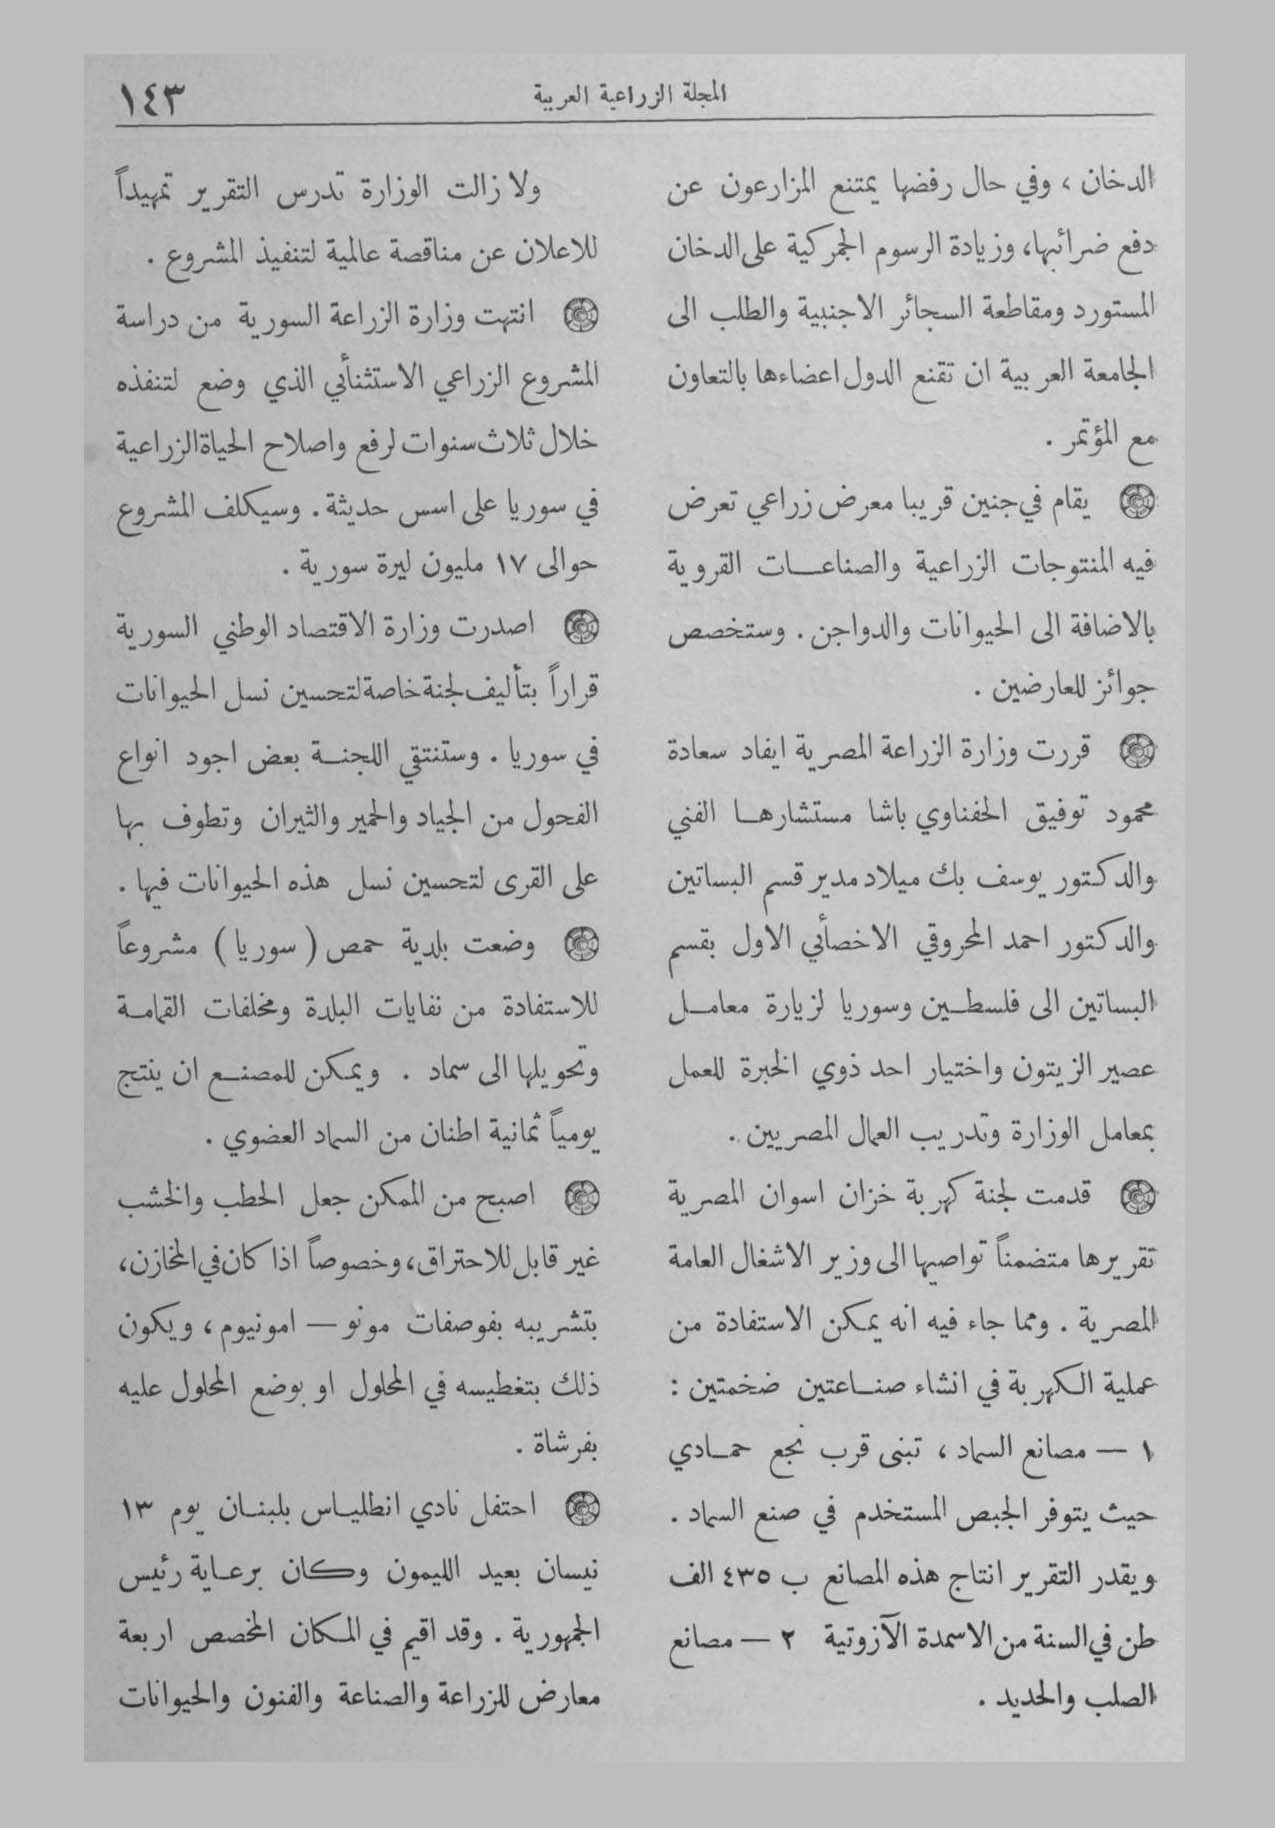 المجلة الزراعية العربية
١٤٣
الدخان ، وفي حال رفضها يمتنع المزارعون عن
دفع ضرائبها، وزيادة الرسوم الجمركية على الدخان
المستورد ومقاطعة السجائر الاجنبية والطلب الى
الجامعة العربية ان تقنع الدول اعضاءها بالتعاون
مع المؤتمر .
يقام في جنين قريبا معرض زراعي تعرض
فيه المنتوجات الزراعية والصناعات القروية
بالاضافة الى الحيوانات والدواجن . وستخصص
جوائز للعارضين .
قررت وزارة الزراعة المصرية ايفاد سعادة
محمود توفيق الحفناوي باشا مستشارها الفني
والدكتور يوسف بك ميلاد مدير قسم البساتين
والدكتور احمد المحروقي الاخصأئي الاول بقسم
البساتين الى فلسطين وسوريا لزيارة معامل
عصير الزيتون واختيار احد ذوي الخبرة للعمل
بمعامل الوزارة وتدريب العمال المصريين .
قدمت لجنة كهربة خزان اسوان المصرية
تقريرها متضمناً تواصيها الى وزير الاشغال العامة
المصرية . ومما جاء فيه انه يمكن الاستفادة من
عملية الكهربة في انشاء صناعتين ضخمتين :
١ — مصانع السماد ، تبنى قرب نجع حمادي
حيث يتوفر الجبص المستخدم في صنع السماد .
ويقدر التقرير انتاج هذه المصانع ب ٤٣٥ الف
طن في السنة من الاسمدة الآزوتية ٢ — مصانع
الصلب والحديد .
ولا زالت الوزارة تدرس التقرير تمهيداً
للاعلان عن مناقصة عالمية لتنفيذ المشروع .
انتهت وزارة الزراعة السورية من دراسة
المشروع الزراعي الاستثنأئي الذي وضع لتنفذه
خلال ثلاث سنوات لرفع واصلاح الحياة الزراعية
في سوريا على اسس حديثة . وسيكلف المشروع
حوالى ١٧ مليون ليرة سورية .
اصدرت وزارة الاقتصاد الوطني السورية
قراراً بتأليف لجنة خاصة لتحسين نسل الحيوانات
في سوريا . وستنتقي اللجنة بعض اجود انواع
الفحول من الجياد والحمير والثيران وتطوف بها
على القرى لتحسين نسل هذه الحيوانات فيها .
وضعت بلدية حمص ( سوريا ) مشروعاً
للاستفادة من نفايات البلدة ومخلفات القمامة
وتحويلها الى سماد . ويمكن للمصنع ان ينتج
يومياً ثمانية اطنان من السماد العضوي .
اصبح من الممكن جعل الحطب والخشب
غير قابل للاحتراق، وخصوصاً اذا كان في المخازن،
بتشريبه بفوصفات مونو — امونيوم ، ويكون
ذلك بتغطيسه في المحلول او بوضع المحلول عليه
بفرشاة .
احتفل نادي انطلياس بلبنان يوم ١٣
نيسان بعيد الليمون وكان برعاية رئيس
الجمهورية . وقد اقيم في المكان المخصص اربعة
معارض للزراعة والصناعة والفنون والحيوانات